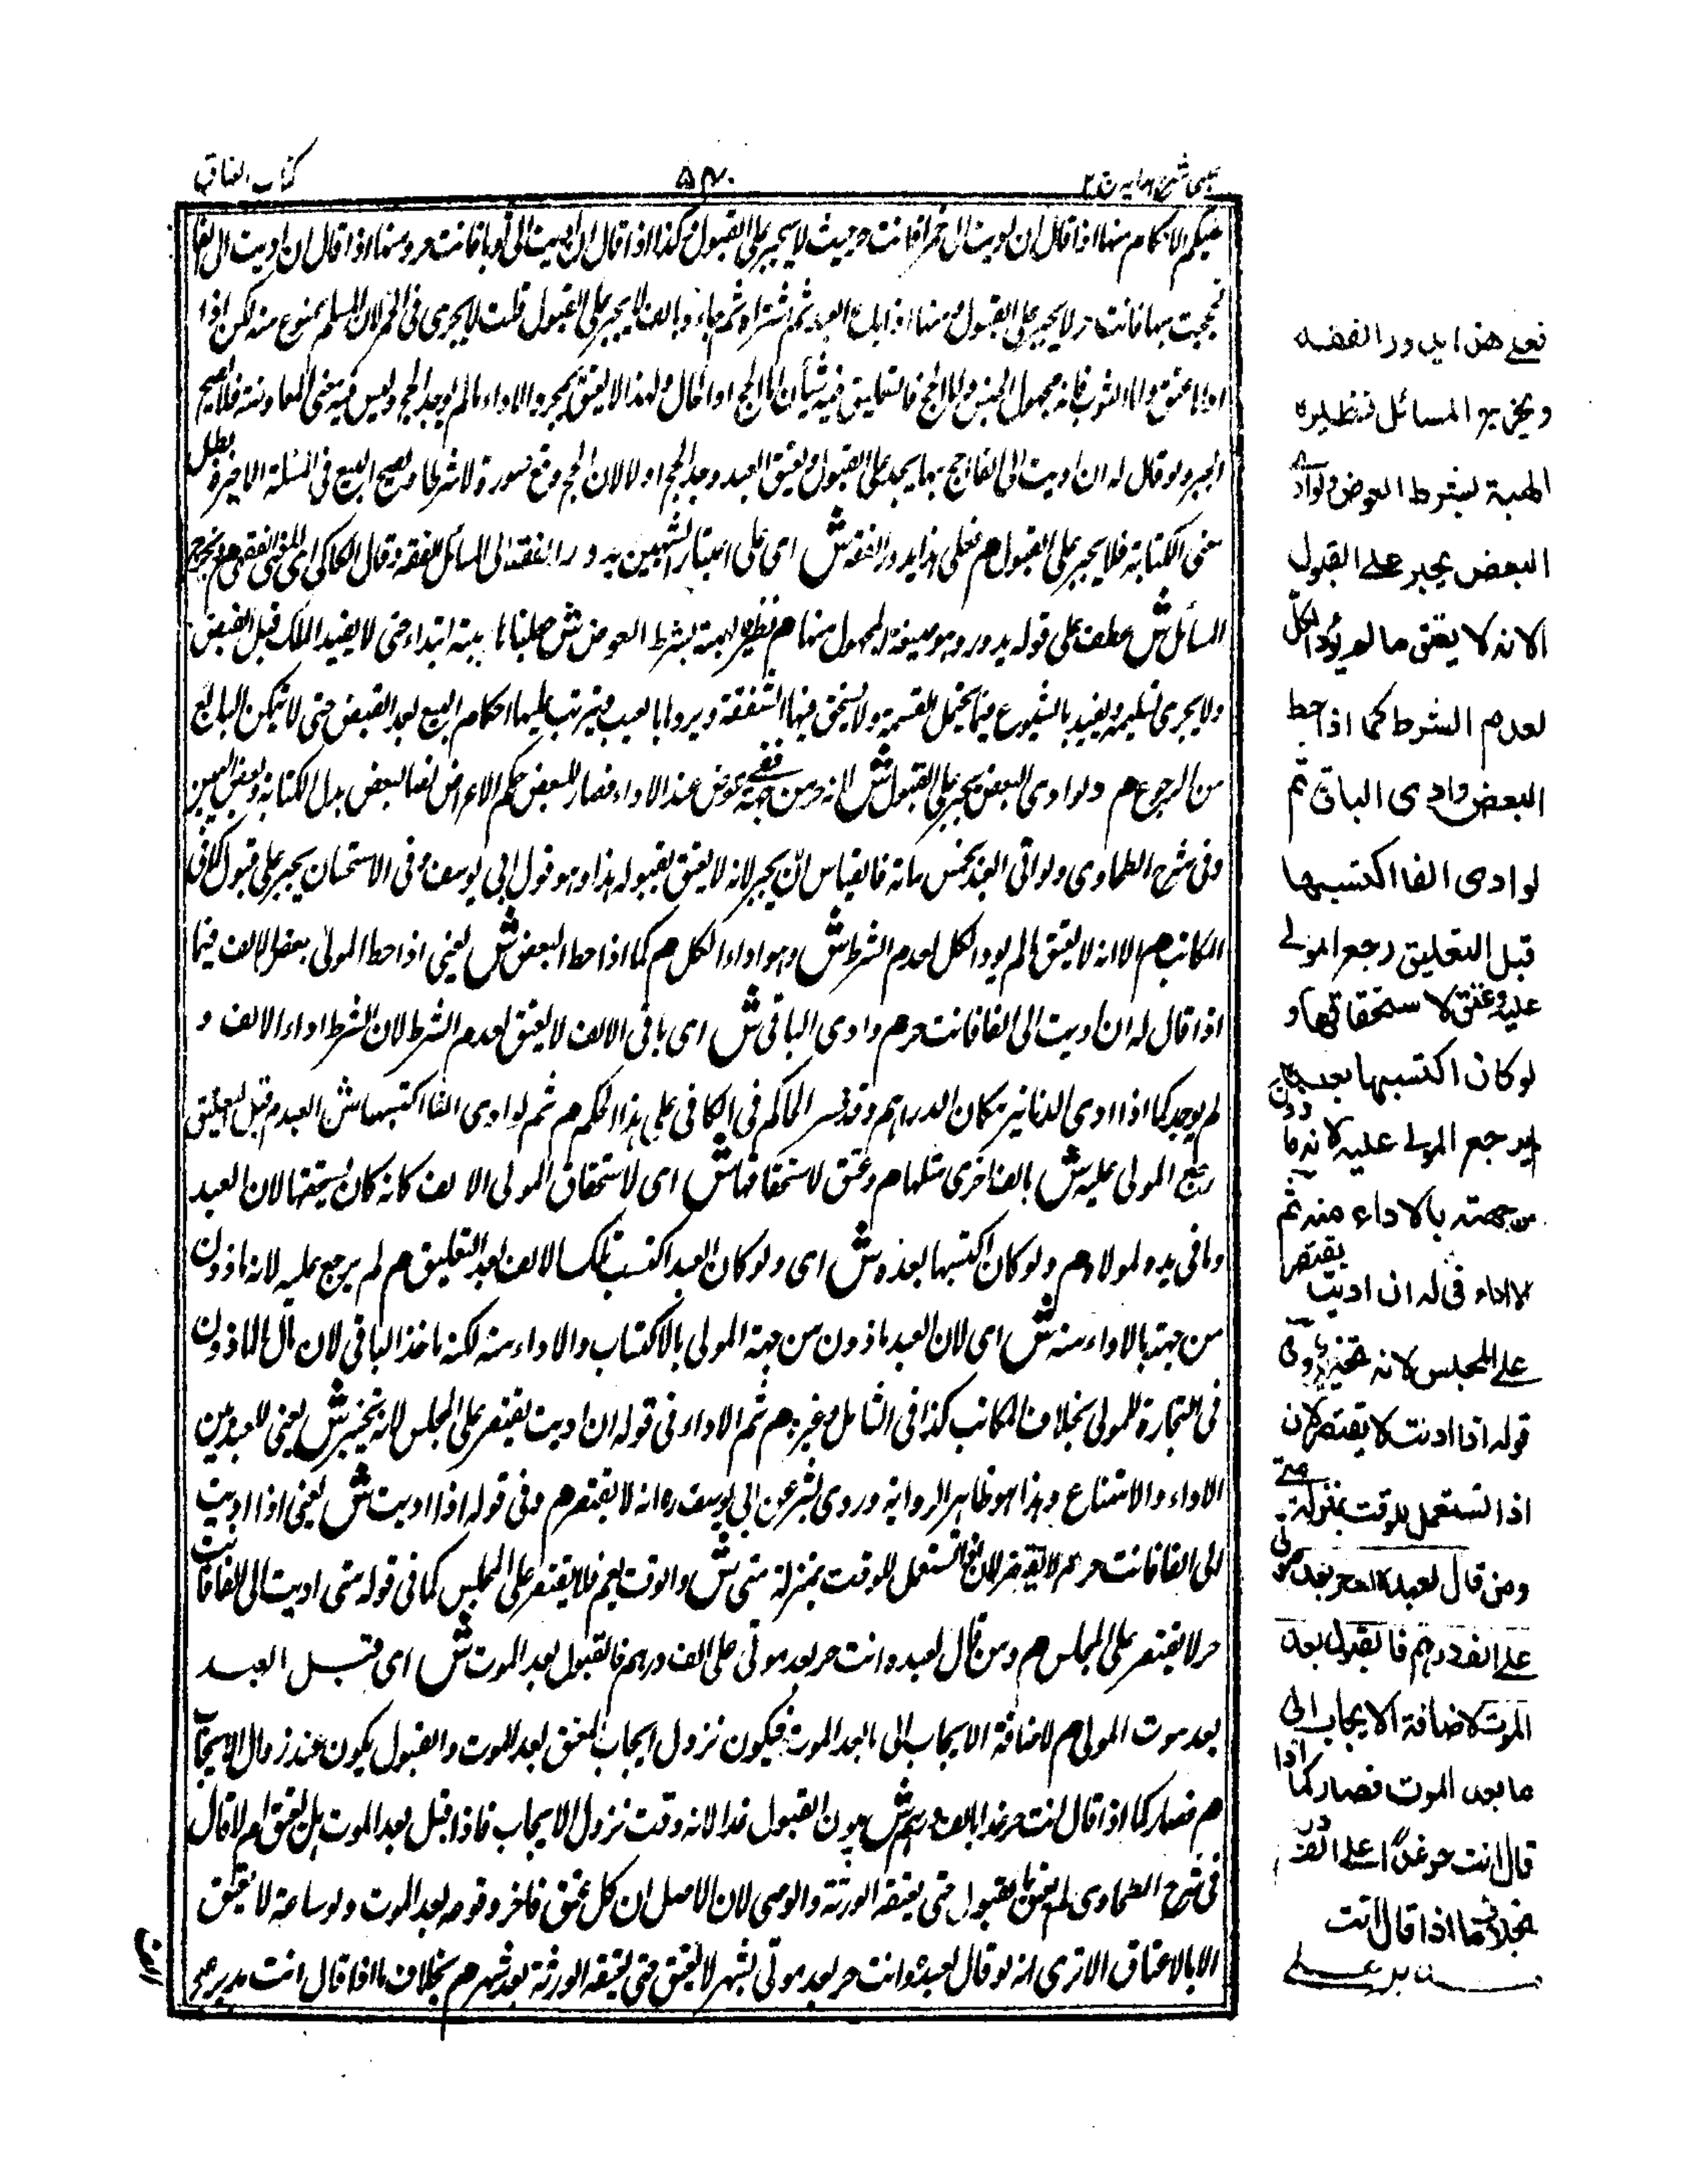 عینی شرح ہدایہ ج ۲
۵۴۰
کتاب العتاق
الاحكام منها اذا قال ان اديت الى خمرا فانت حر حيث لا يجبر على القبول وكذا اذا قال ان اديت الى ثوبا فانت حر ومنها اذا قال ان اديت الى الفا
فحججت بها فانت حر لا يجبر على القبول ومنها اذا باع العبد ثم اشتراه ثم جاءه بالف لا يجبر على القبول قلت لا يجرى فى الخمر لان المسلم ممنوع منه لكن اذا
اداها عتق واما الثوب فانه مجهول الجنس واما الحج فالتعليق فيه شيأن المال الحج او المال ولهذا لا يعتق بمجرد الاداء ما لم يوجد الحج وليس فيه معنى المعاوضة فلا يصح
الجبر ولو قال له ان اديت الى الفا احج بها يجبر على القبول ويعتق العبد وجد الحج او لا لان الحج وقع مشورة لا شرطا وبيع البيع فى المسئلة الاخيرة بطل
معنى الكتابة فلا يجبر على القبول م فعلى هذا يدور الفقه ش اى على اعتبار الشبهين يدور الفقه الى المسائل الفقه وقال الكاكى اى المعنى الفقهى م ويخرج
المسائل ش عطف على قوله يدور وهو صيغة المجهول منها م نظيره الهبة بشرط العوض ش جعلناها هبة ابتداء حتى لا يفيد الملك قبل القبض
ولا يجرى تسليمه ويفيد بالشيوع فيما يحتمل القسمة ولا يستحق فيها الشفعة ويرد بالعيب فيترتب عليها احكام البيع بعد القبض حتى لا يتمكن البائع
من الرجوع م ولو ادى البعض يجبر على القبول ش لانه من جهة عوض عند الاداء فصار للبعض حكم الاعراض لهذا البعض بدل الكتابة وبعض اليمين
وفى شرح الطحاوى ولو اتى العبد بخمس مائة فالقياس ان يجبر لانه لا يعتق بقبوله هذا وهو قول ابى يوسف وفى الاستحسان يجبر على قبول كما فى
المكاتب م الا انه لا يعتق ما لم يود الكل لعدم الشرط ش وهو اداء الكل م كما اذا حط البعض ش يعنى اذا حط المولى بعض الالف فيما
اذا قال له ان اديت الى الفا فانت حر م وادى الباقى ش اى باقى الالف لا يعتق لعدم الشرط لان الشرط اداء الالف و
لم يوجد كما اذا ادى الدنانير مكان الدراهم وقد فسر الحاكم فى الكافى على هذا الحكم م ثم لو ادى الفا اكتسبها ش العبد م قبل التعليق
رجع المولى عليه ش بالف اخرى مثلها م وعتق لاستحقاقها ش اى لاستحقاق المولى الالف كانه كان يستحقها لان العبد
وما فى يده لمولاه م ولو كان اكتسبها بعده ش اى ولو كان العبد اكتسب تلك الالف بعد التعليق م لم يرجع عليه لانه ماذون
من جهته بالاداء منه ش اى لان العبد ماذون من جهة المولى بالاكتساب والاداء منه لكنه ياخذ الباقى لان مال الماذون
فى التجارة للمولى بخلاف المكاتب كذا فى الشامل وغيره م ثم الاداء فى قوله ان اديت يقتصر على المجلس لانه تخيير ش يعنى للعبد بين
الاداء والامتناع وهذا هو ظاهر الرواية وروى بشر عن ابى يوسف ره انه لا يقتصر م وفى قوله اذا اديت ش يعنى اذا اديت
الى الفا فانت حر م لا يقتصر لان اذا تستعمل للوقت بمنزلة متى ش والوقت يعم فلا يقتصر على المجلس كما فى قوله متى اديت الى الفا فانت
حر لا يقتصر على المجلس م ومن قال لعبده انت حر بعد موتى على الف درهم فالقبول بعد الموت ش اى قبل العبد
بعد موت المولى م لاضافة الايجاب الى ما بعد الموت فيكون نزول ايجاب العتق بعد الموت والقبول يكون عند زوال الايجاب
م فصار كما اذا قال انت حر غدا بالف درهم ش يكون القبول غدا لانه وقت نزول الايجاب فاذا قبل بعد الموت هل يعتق ام لا قال
فى شرح الطحاوى لم يعتق بالقبول حتى يعتقه الورثة والوصى لان الاصل ان كل عتق تاخر وقوعه بعد الموت ولو ساعة لا يعتق
الا بالاعتاق الا ترى انه لو قال لعبده انت حر بعد موتى بشهر لا يعتق حتى يعتقه الورثة بعد شهر م بخلاف ما اذا قال انت مدبر على
الف
فعلى هذا يدور الفقه
ويخرج المسائل نظيره
الهبة بشرط العوض ولو ادى
البعض يجبر على القبول
الا انه لا يعتق ما لم يؤد الكل
لعدم الشرط كما اذا حط
البعض وادى الباقى ثم
لو ادى الفا اكتسبها
قبل التعليق رجع المولى
عليه وعتق لاستحقاقها و
لو كان اكتسبها بعده
لم يرجع المولى عليه لانه ماذون
من جهته بالاداء منه ثم
الاداء فى قوله ان اديت يقتصر
على المجلس لانه تخيير وفى
قوله اذا اديت لا يقتصر لان
اذا تستعمل للوقت بمنزلة متى
ومن قال لعبده انت حر بعد موتى
على الف درهم فالقبول بعد
الموت لاضافة الايجاب الى
ما بعد الموت فصار كما اذا
قال انت حر غدا على الف درهم
بخلاف ما اذا قال انت
مدبر على